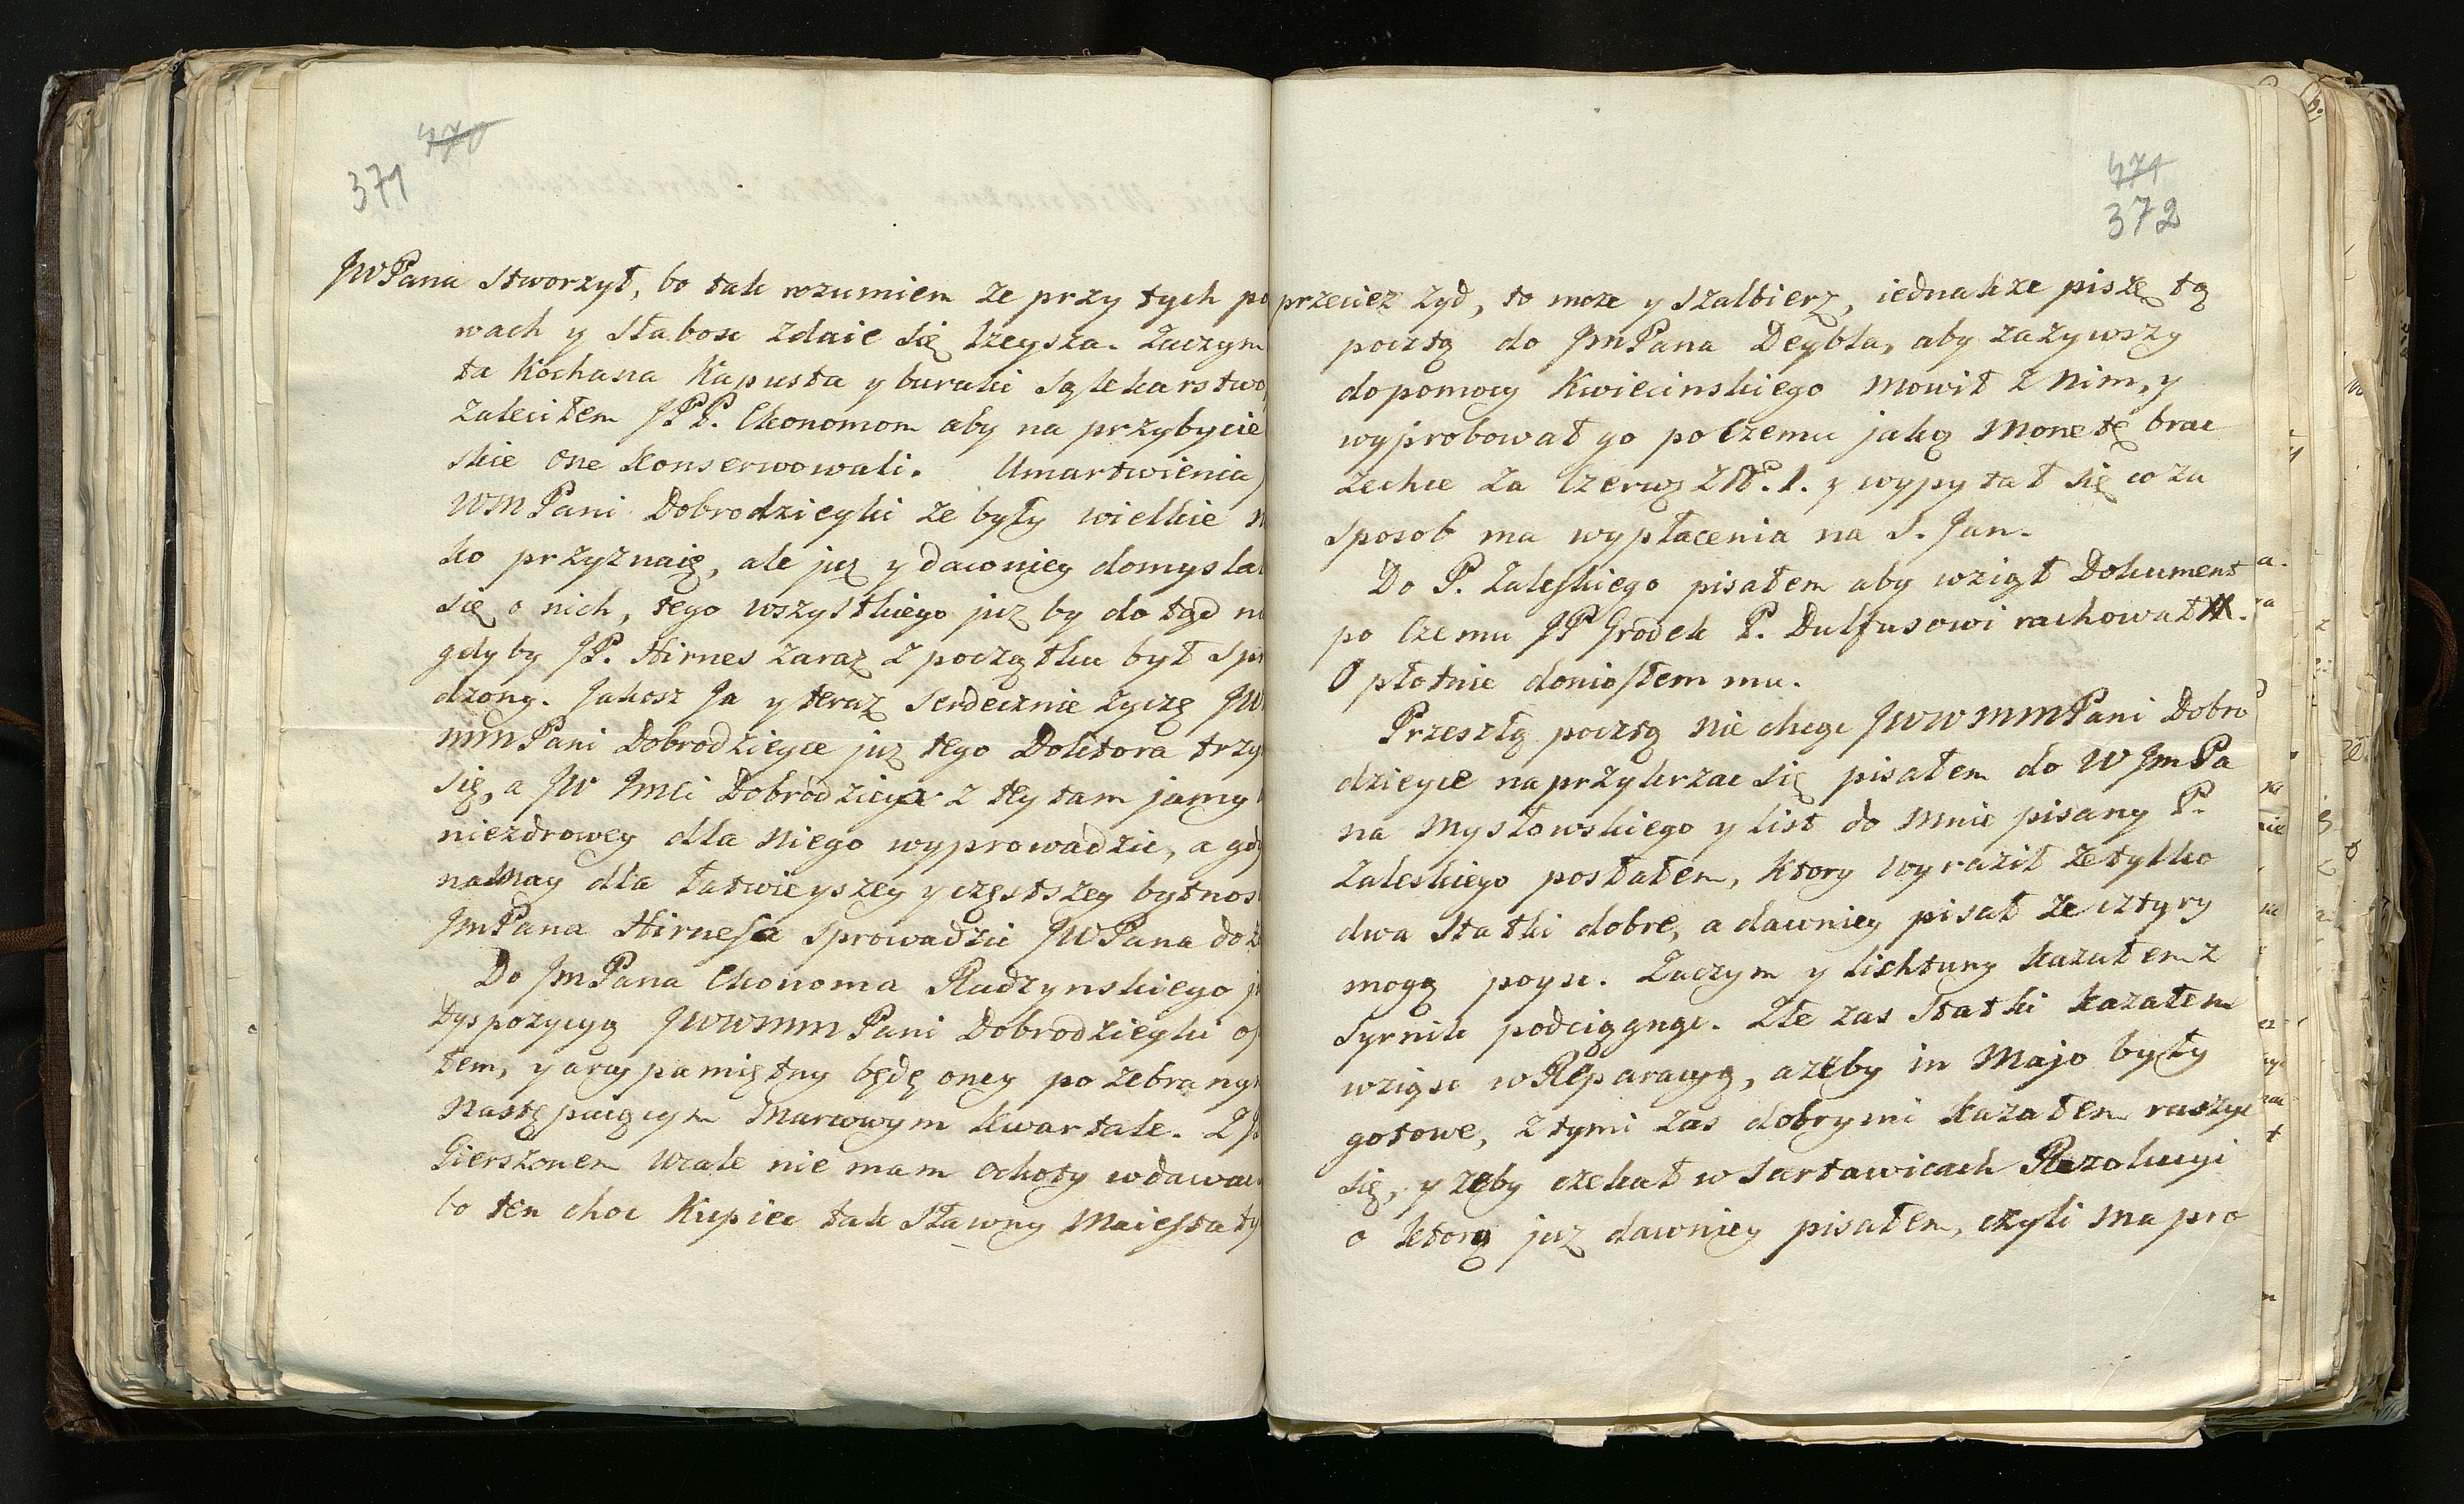 470
371
JWPana stworzył, bo tak rozumiem ze przy tych po
wach y słabosc zdaie się lzeysza. Zaczym
ta kochana kapusta y buraki są lekarstwo
zaleciłem JPP. Ekonomom aby na przybycie
skie one konserwowali. Umartwienia
WMPani Dobrodzieyki ze były wielkie
ko przyznaię, ale juz y dawniey domysla
się o nich, tego wszystkiego juz by do tąd
gdyby JP. Hirnes zaraz z początku był spr
dzony. Jakosz Ja y teraz serdecznie zyczę JW
mmPani Dobrodzieyce juz tego Doktora trzy
się, a JW Jmci Dobrodzieya z tey tam jamy
niezdrowey dla niego wyprowadzic, a gdy
na May dla łatwieyszey y częstszey bytnos
JmPana Hirnesa sprowadzic JWPana do
Do JmPana Ekonoma Radzynskiego
dyspozycyą JWWmmPani Dobrodzieyki
łem, y araj pamiętny będę oney po zebrany
następuiącym Marcowym kwartale. Z
Gierszonem wcale nie mam ochoty wdawac
bo ten choc kupiec tak sławny Maiestaty
471
372
przeciez zyd, to moze y szalbierz, iednakze piszę tą
pocztą do JmPana Deybla, aby zazywszy
do pomocy Kwiecinskiego mowił z nim, y
wyprobował go po czemu jaką monetę brac
zechce za Czerwo złł. 1. y wypytał się co za
sposob ma wypłacenia na S. Jan.
Do P. Zaleskiego pisałem aby wziął Dokument
po czemu JP Grodek P. Dulfusowi rachował.
O płotnie doniosłem mu.
Przeszłą pocztą nie chcąc JWWmmPani Dobro
dzieyce naprzykrzac się pisałem do WJmPa
na Mysłowskiego y list do mnie pisany P.
Zaleskiego posłałem, ktory wyraził ze tylko
dwa statki dobre, a dawniey pisał ze cztyry
mogą poysc. Zaczym y lichtuny kazałem z
Syrnik podciągnąc. Złe zas statki kazałem
wziąsc w Reparacyą, azeby in Majo były
gotowe, z tymi zas dobrymi kazałem ruszyc
się, y zeby czekał w Sartawicach Rezolucyi
o ktorą juz dawniey pisałem, czyli ma pro